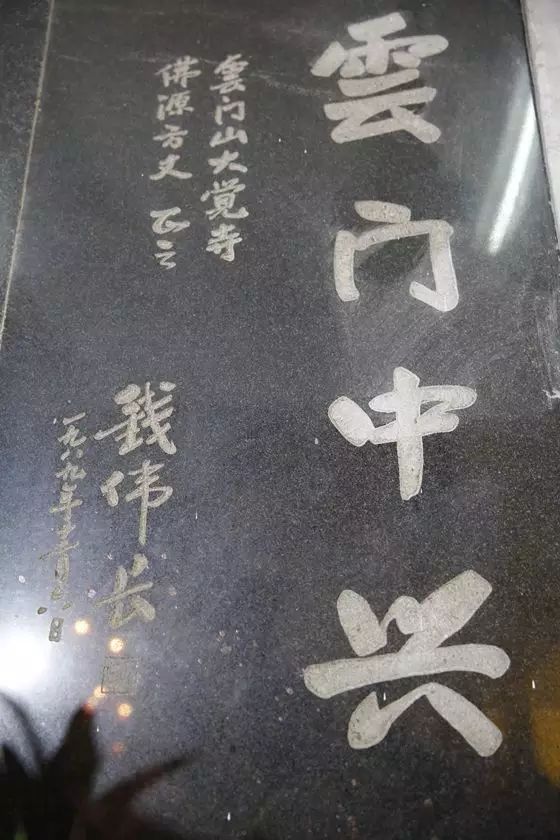 雲门中兴
雲门山大覚寺
佛源方丈 正之
錢伟长
一九八九年